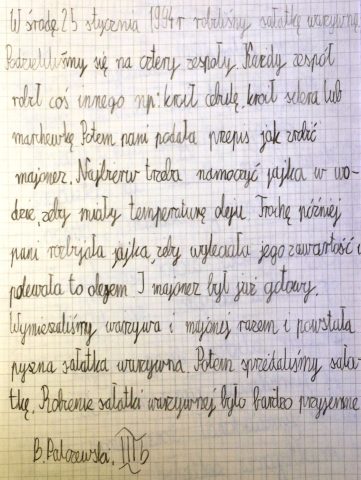 W środę 25 stycznia 1994r robiliśmy sałatkę warzywną.
Podzieliliśmy się na cztery zespoły. Każdy zespół
robił coś innego np: kroił cebulę, kroił selera lub
marchewkę. Potem pani podała przepis jak zrobić
majonez. Najbierw trzeba namoczyć jajka w wo-
dzie, żeby miały temperaturę oleju. Trochę później
pani rozbijała jajka, żeby wyleciała jego zawartość i
polewała to olejem I majonez był już gotowy.
Wymieszaliśmy warzywa i majonez razem i powstała
pyszna sałatka warzywna. Potem sprzedaliśmy sała-
tkę. Robienie sałatki warzywnej było bardzo przyjemne
B. Palczewska. III b